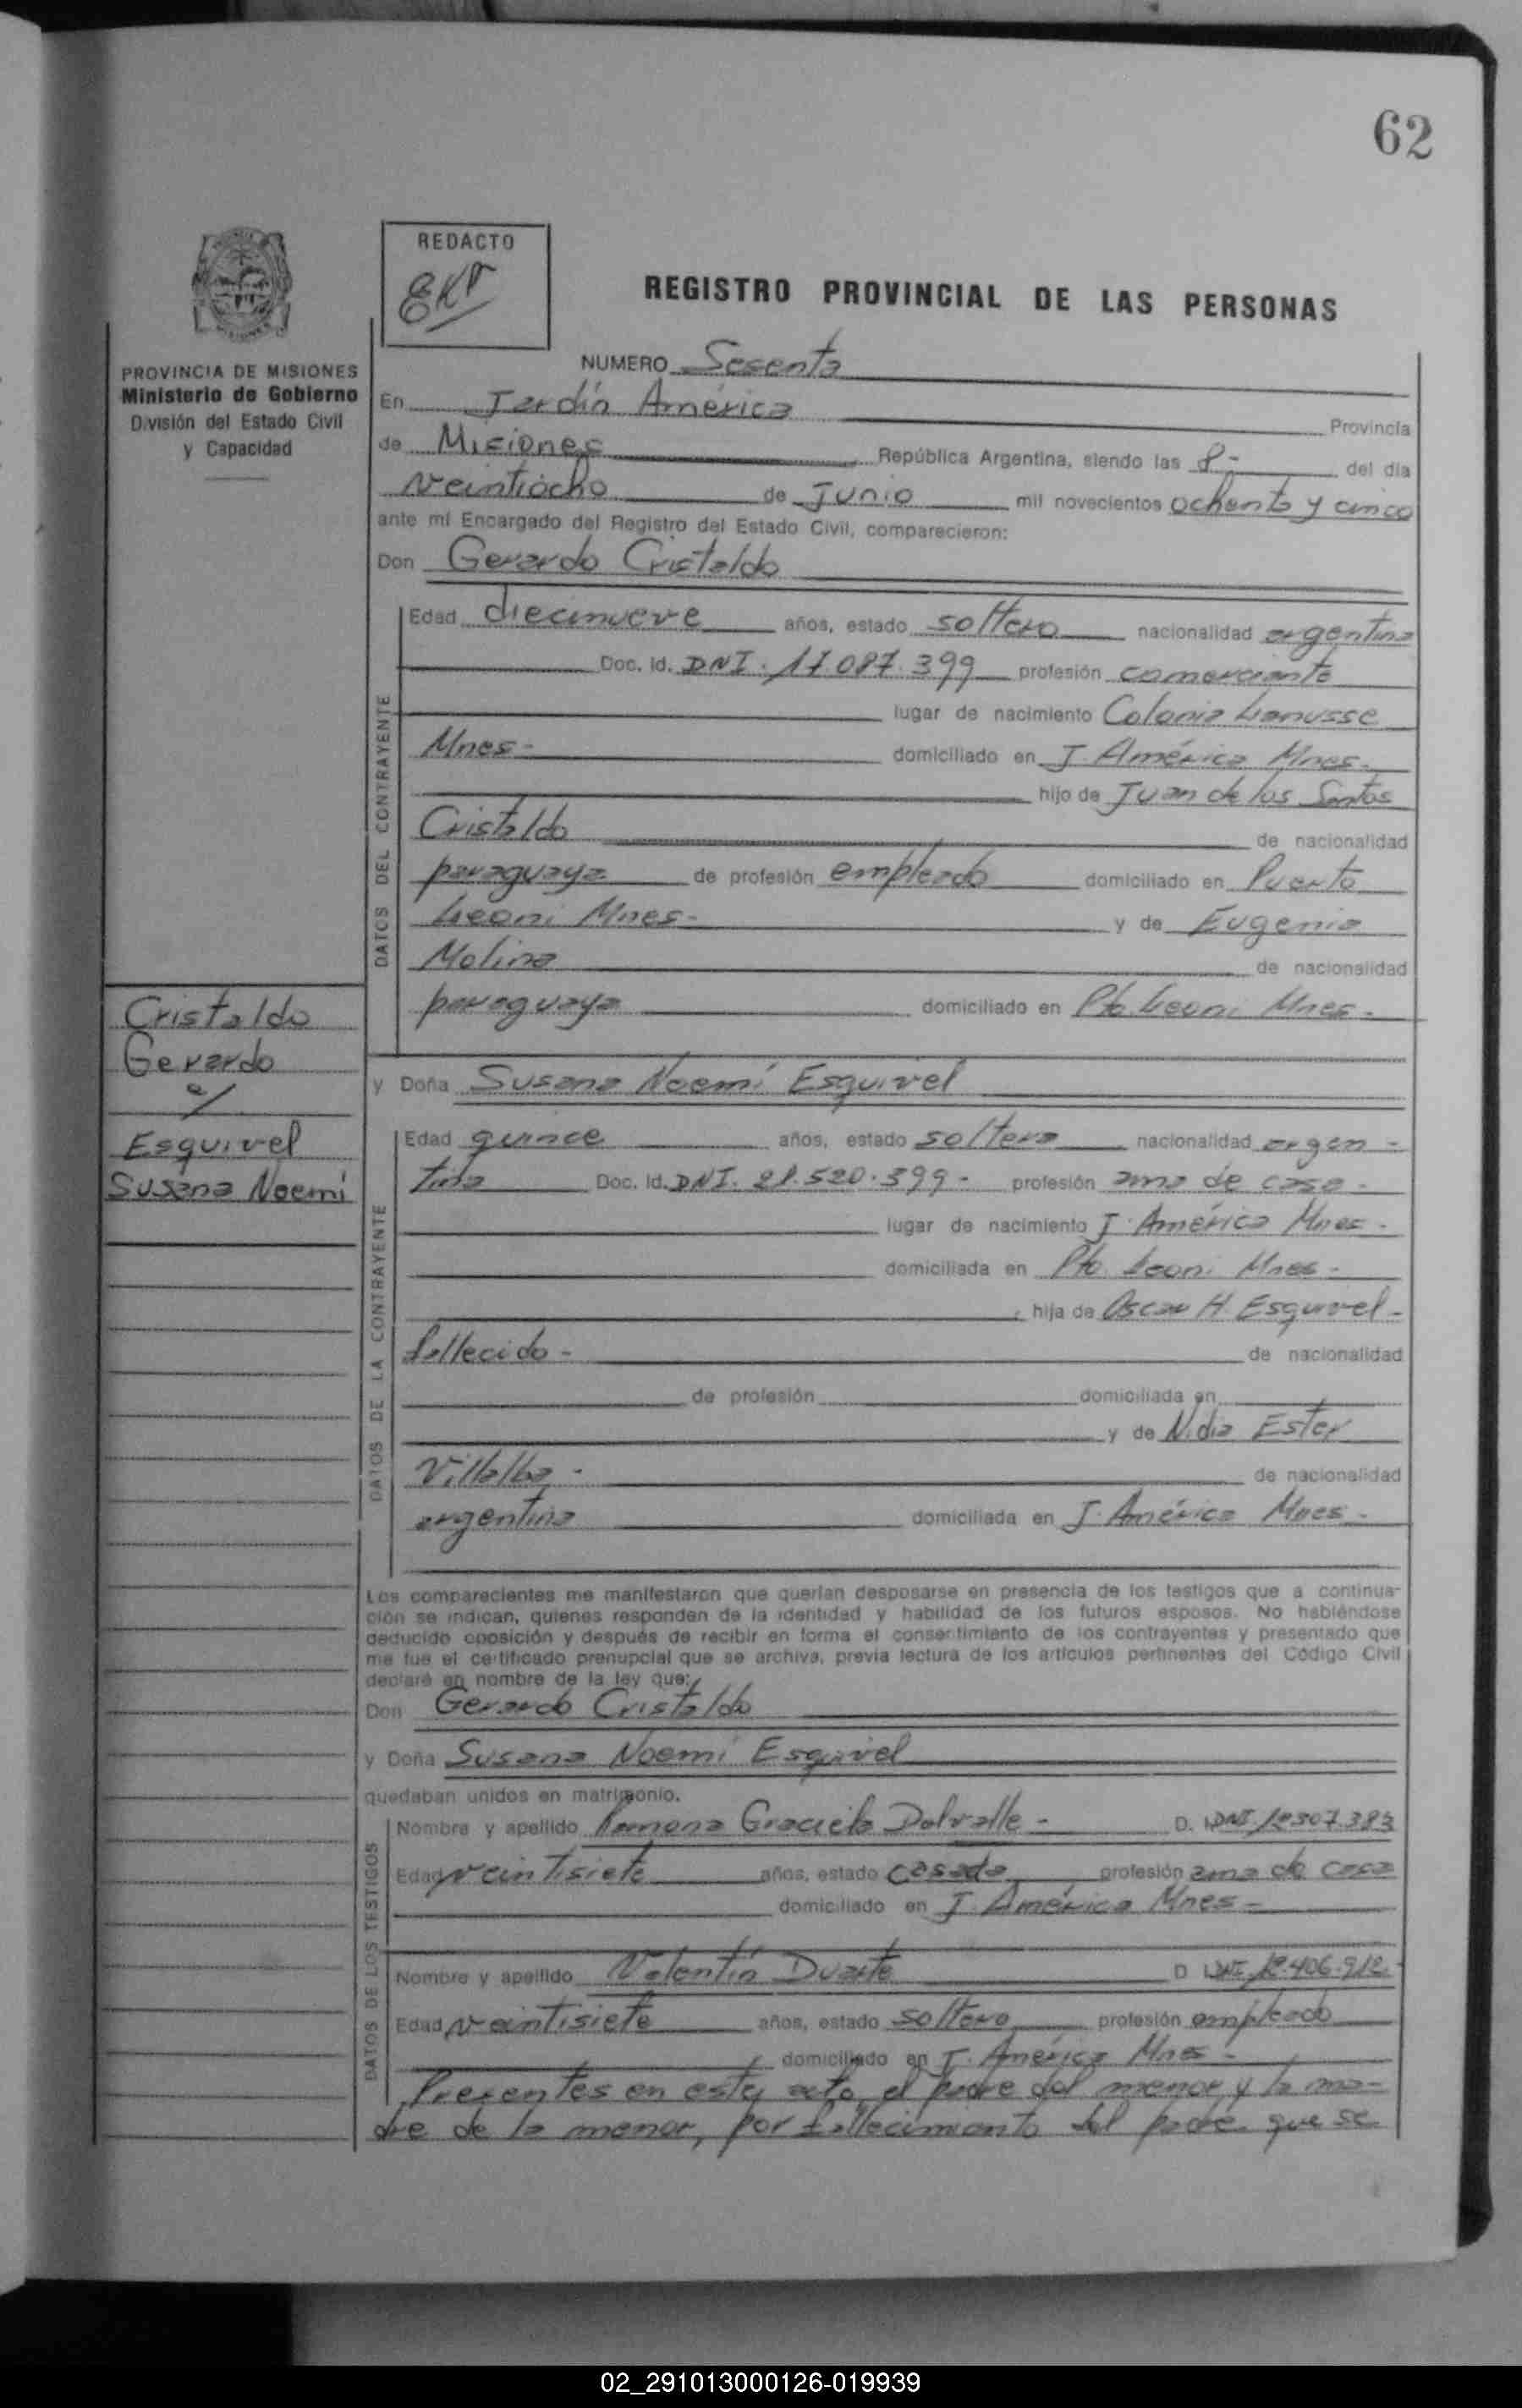 62
REDACTO
REGISTRO PROVINCIAL DE LAS PERSONAS
PROVINCIA DE MISIONES
Ministerio de Gobierno
División del Estado Civil
y Capacidad
NUMERO Sesenta
En Jardín América Provincia
de Misiones República Argentina, siendo las 8- del día
veintiocho de Junio mil novecientos ochenta y cinco
ante mí Encargado del Registro del Estado Civil, comparecieron:
Don Gerardo Cristaldo
DATOS DEL CONTRAYENTE
Edad diecinueve años, estado soltero nacionalidad argentina
Doc. Id. DNI. 17.087.399 profesión comerciante
lugar de nacimiento Colonia Lanusse
Mnes- domiciliado en J. América Mnes-
hijo de Juan de los Santos
Cristaldo de nacionalidad
paraguaya de profesión empleado domiciliado en Puerto
Leoni Mnes- y de Eugenia
Molina de nacionalidad
paraguaya domiciliado en Pto. Leoni Mnes-
Cristaldo
Gerardo
c/
Esquivel
Susana Noemí
y Doña Susana Noemí Esquivel
DATOS DE LA CONTRAYENTE
Edad quince años, estado soltera nacionalidad argen-
tina Doc. Id. DNI. 21.520.399- profesión ama de casa-
lugar de nacimiento J. América Mnes-
domiciliada en Pto. Leoni Mnes-
hija de Oscar H. Esquivel-
fallecido- de nacionalidad
de profesión domiciliada en
y de Nidia Ester
Villalba- de nacionalidad
argentina domiciliada en J. América Mnes-
Los comparecientes me manifestaron que querían desposarse en presencia de los testigos que a continua-
ción se indican, quienes responden de la identidad y habilidad de los futuros esposos. No habiéndose
deducido oposición y después de recibir en forma el consentimiento de los contrayentes y presentado que
me fue el certificado prenupcial que se archiva, previa lectura de los artículos pertinentes del Código Civil
declaré en nombre de la ley que:
Don Gerardo Cristaldo
y Doña Susana Noemí Esquivel
quedaban unidos en matrimonio.
DATOS DE LOS TESTIGOS
Nombre y apellido Ramona Graciela Dalvalle- D. DNI. 12.307.383
Edad veintisiete años, estado casada profesión ama de casa
domiciliado en J. América Mnes-
Nombre y apellido Valentín Duarte D DNI 12.406.912
Edad veintisiete años, estado soltero profesión empleado
domiciliado en J. América Mnes-
Presentes en este acto el padre del menor y la ma-
dre de la menor, por fallecimiento del padre que se
02_291013000126-019939